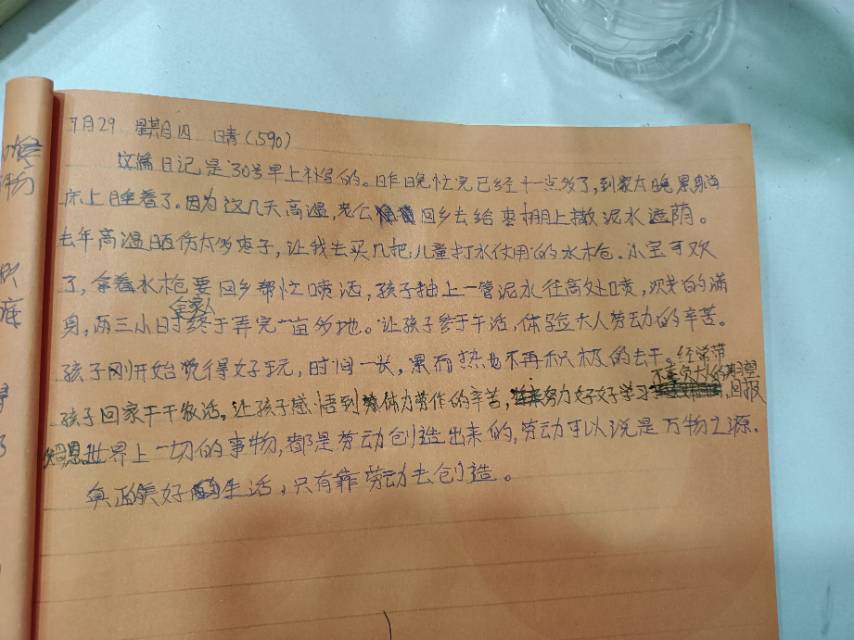 7月29 星期四 晴(590)
这篇日记是30号早上补写的。昨晚忙完已经十一点多了,到家太晚累躺
床上睡着了。因为这几天高温,老公回乡去给枣棚上撒泥水遮荫。
去年高温晒伤太多枣子,让我去买几把儿童打水仗用的水枪。小宝可欢
了,拿着水枪要回乡帮忙喷洒,孩子抽上一管泥水往高处喷,欢笑的满
身,两三小时全家人终于弄完一亩多地。让孩子参于干活,体验大人劳动的辛苦。
孩子刚开始觉得好玩,时间一长,累而热也不再积极的去干。经常带
孩子回家干干农活。让孩子感悟到体力劳作的辛苦,努力好好学习不辜负大人的期望,回报
父母恩。世界上一切的事物,都是劳动创造出来的,劳动可以说是万物之源.
真正美好的生活,只有靠劳动去创造。